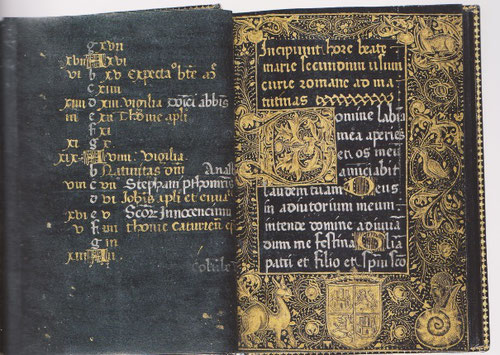 g xvii
xviii A xvi
vi b xv Expectatio bte
c xiiii
xiiii d xiii Vigilia
iii e xii Thome apli
f xi
xi g x
xix A viiii Vigilia
b Nativitas dni
viii c vii Stephani pthomris
d vi Iohis apli et
xvi e v Scor Innocencium
v f iiii thome
g iii
xiii A ii
Incipiunt hore beate
marie secundum usum
curie romane ad ma
tutinas
Domine labia
mea aperies
en os meum
anunciabit
laudem tuam Deus
in adiutorium meum
intende domine ad iuvan
dum me festina Glia
patri et filio et spiui sco